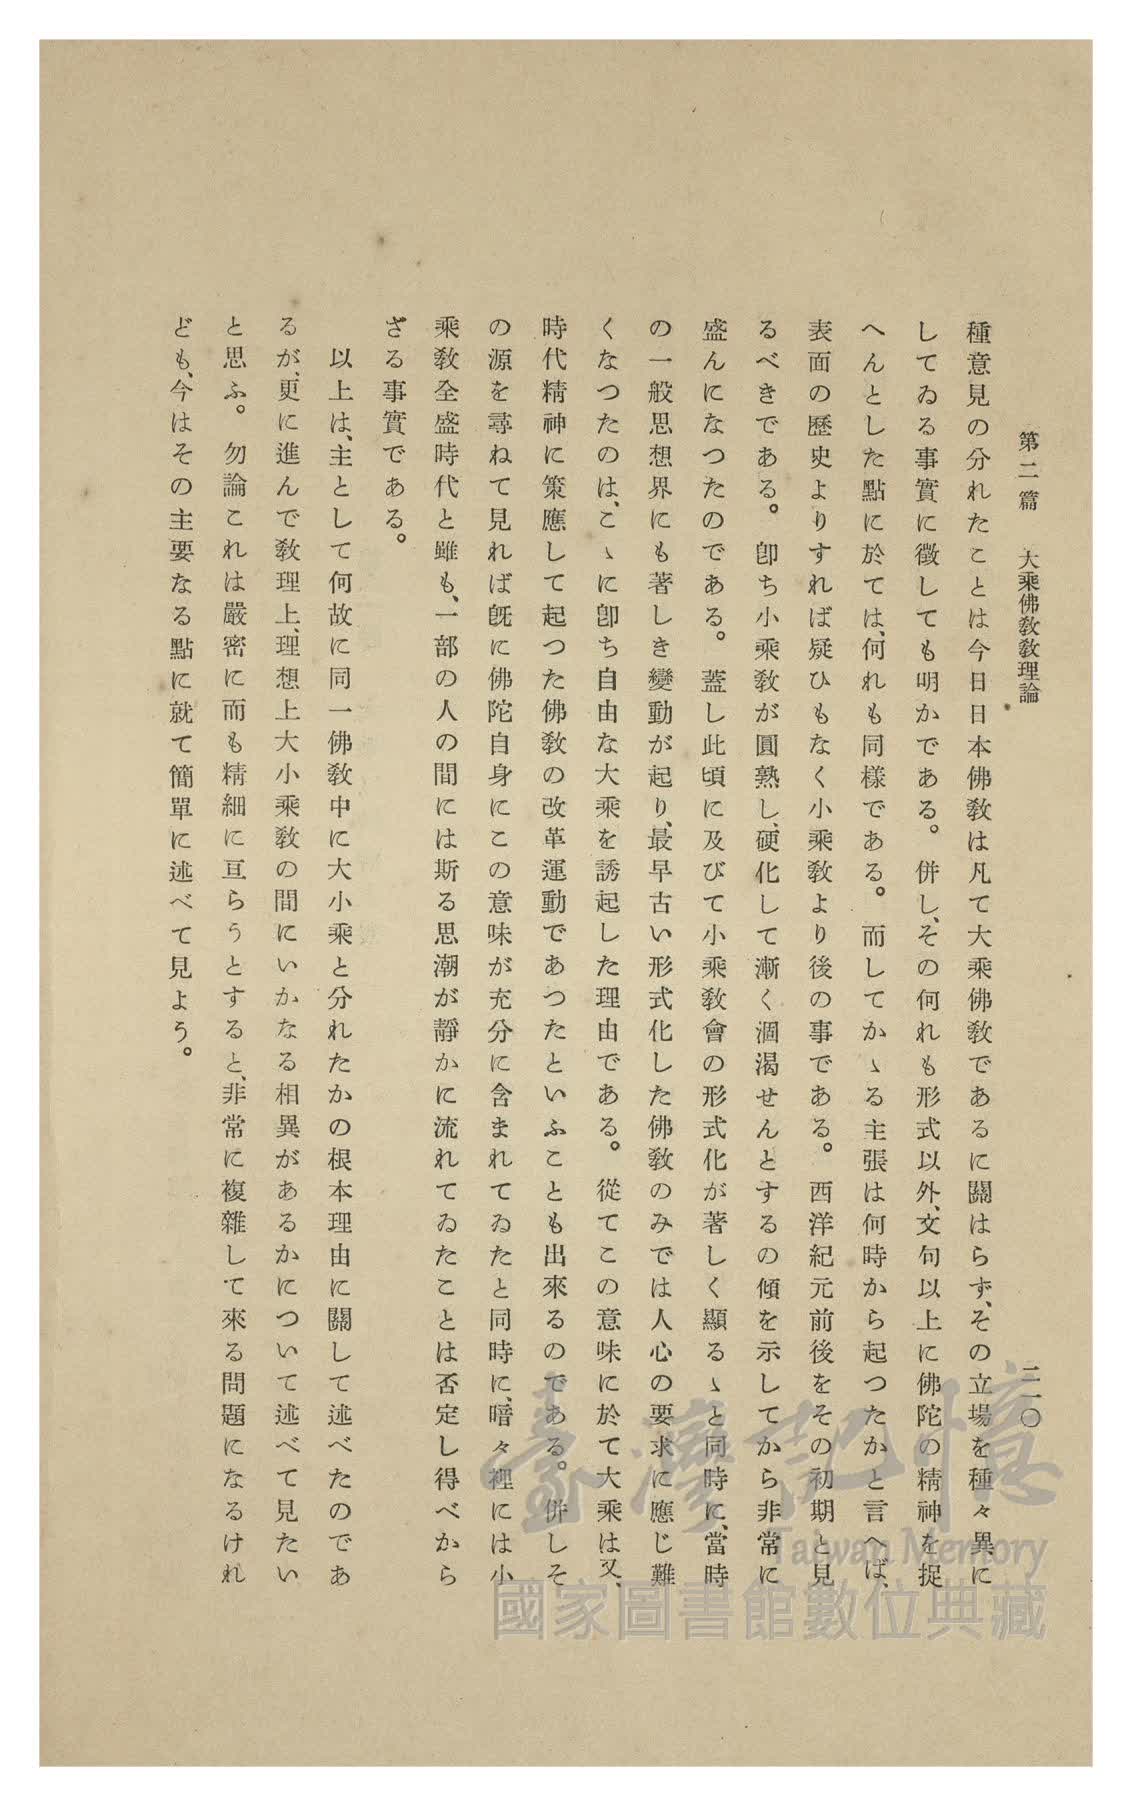 第二篇　大乘佛敎敎理論　二一〇
種意見の分れたことは今日日本佛敎は凡て大乘佛敎であるに關はらず、その立場を種々異に
してゐる事實に徵しても明かである。併し、その何れも形式以外、文句以上に佛陀の精神を捉
へんとした點に於ては、何れも同樣である。而してかゝる主張は何時から起つたかと言へば、
表面の歷史よりすれば疑ひもなく小乘敎より後の事である。西洋紀元前後をその初期と見
るべきである。卽ち小乘敎が圓熟し、硬化して漸く涸渴せんとするの傾を示してから非常に
盛んになつたのである。蓋し此頃に及びて小乘敎會の形式化が著しく顯るゝと同時に、當時
の一般思想界にも著しき變動が起り、最早古い形式化した佛敎のみでは人心の要求に應じ難
くなつたのは、こゝに卽ち自由な大乘を誘起した理由である。從てこの意味に於て大乘は又、
時代精神に策應して起つた佛敎の改革運動であつたといふことも出來るのである。併しそ
の源を尋ねて見れば旣に佛陀自身にこの意味が充分に含まれてゐたと同時に、暗々裡には小
乘敎全盛時代と雖も、一部の人の間には斯る思潮が靜かに流れてゐたことは否定し得べから
ざる事實である。
以上は、主として何故に同一佛敎中に大小乘と分れたかの根本理由に關して述べたのであ
るが、更に進んで敎理上、理想上大小乘敎の間にいかなる相異があるかについて述べて見たい
と思ふ。勿論これは嚴密に而も精細に亘らうとすると、非常に複雜して來る問題になるけれ
ども、今はその主要なる點に就て簡單に述べて見よう。
臺灣記憶
Taiwan Memory
國家圖書館數位典藏